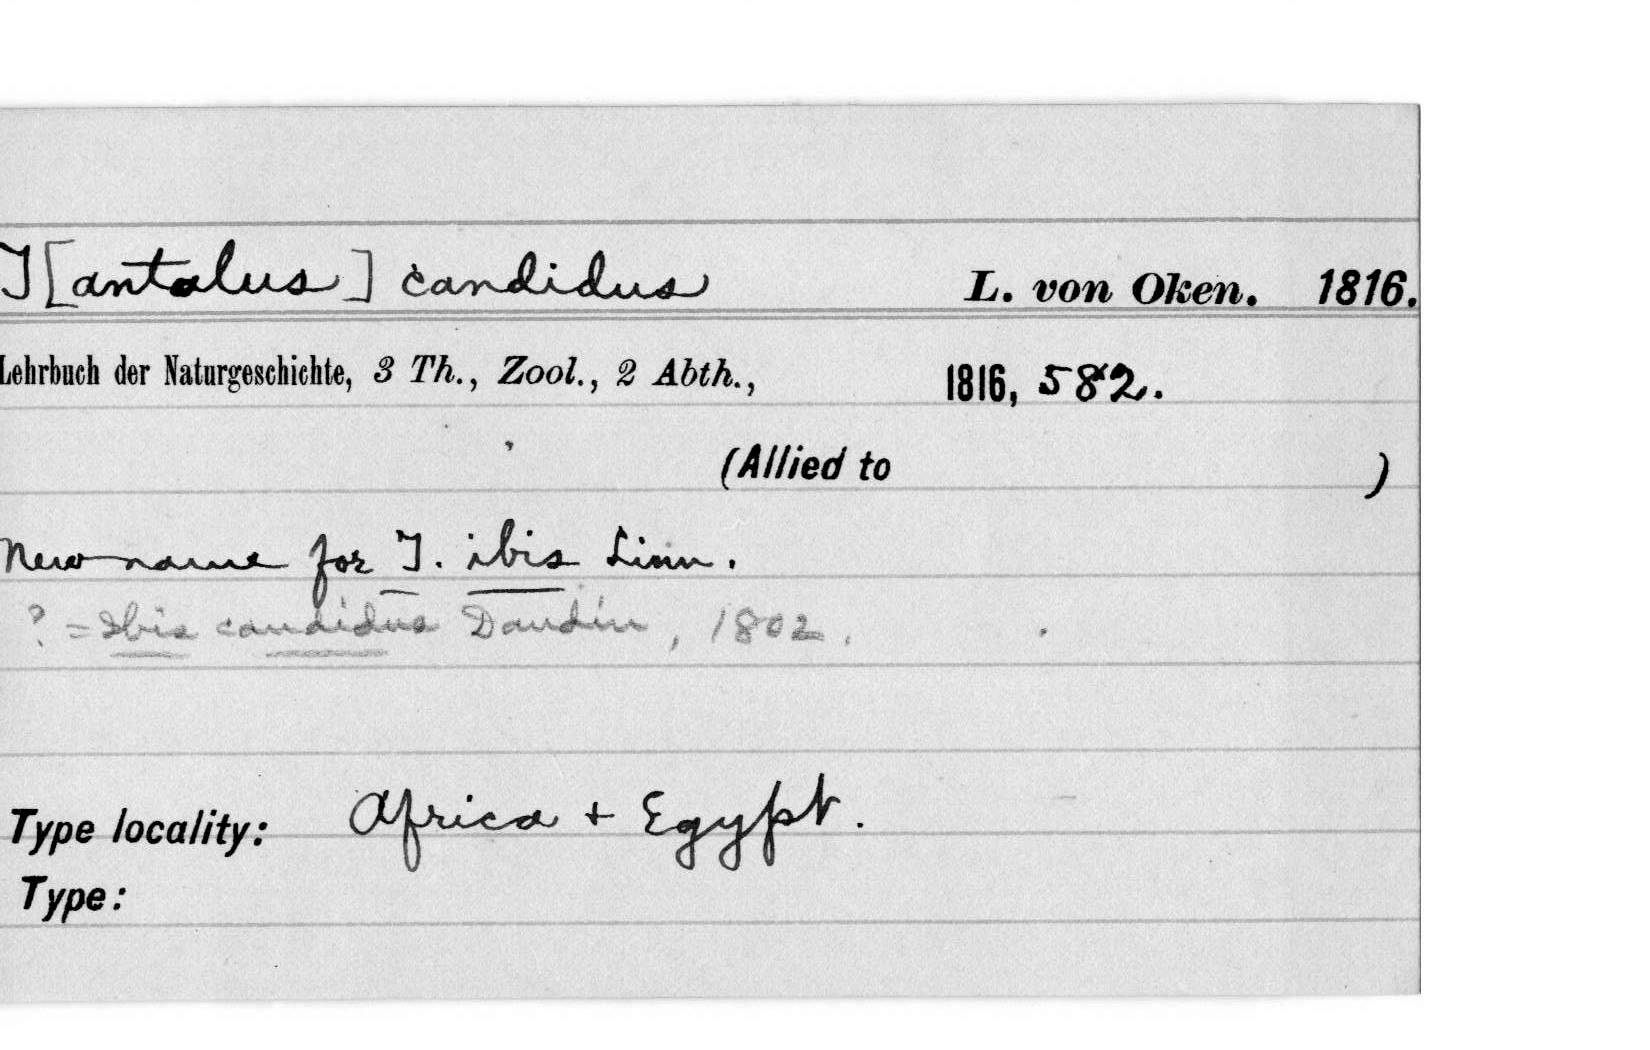 T[antalus] candidus L. von Oken. 1816.
Lehrbuch der Naturgeschichte, 3 Th., Zool., 2 Abth., 1816, 582.
(Allied to )
New name for T. ibis Linn.
? = Ibis candidus Daudin, 1802.
Type locality: Africa + Egypt.
Type: